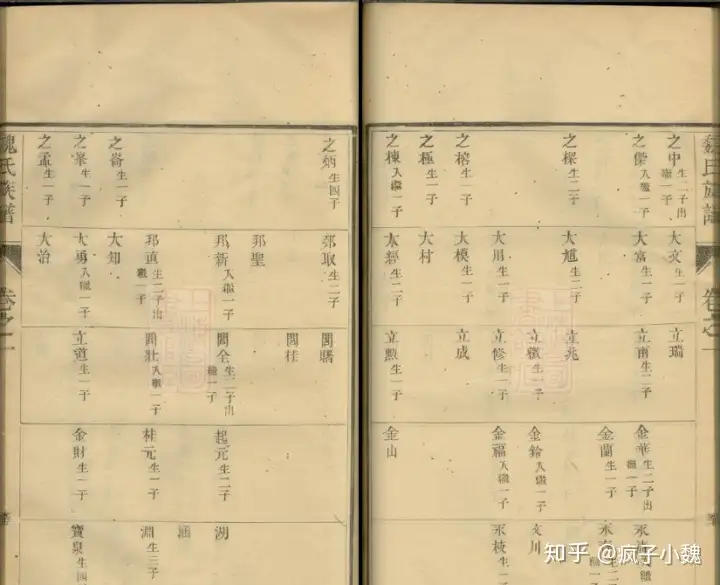 之中 生二子出繼一子
之傑 入繼一子
之樑 生二子
之榕 生一子
之極 生一子
之棟 入繼一子
大文 生一子
大富 生一子
大旭 生二子
大用 生一子
大模 生一子
大村
大經 生二子
立瑞
立南 生二子
立兆
立徵 生一子
立修 生一子
立成
立勲 生一子
金華 生二子出繼一子
金蘭 生一子
金鈴 入繼一子
金福 入繼一子
金山
永
永
文川
永枝
魏氏族譜
卷之一
之炳 生四子
之崙 生一子
之峯 生一子
之孟 生一子
邦取 生二子
邦聖
邦新 入繼一子
邦直 生二子出繼一子
大知
大勇 入繼一子
大治
開購
開桂
開全 生二子出繼一子
開壯 入繼一子
立道 生一子
起元 生二子
桂元 生一子
金財 生一子
湖
涵
淵 生三子
寶泉 生四
魏氏族譜
卷之一
知乎 @疯子小魏